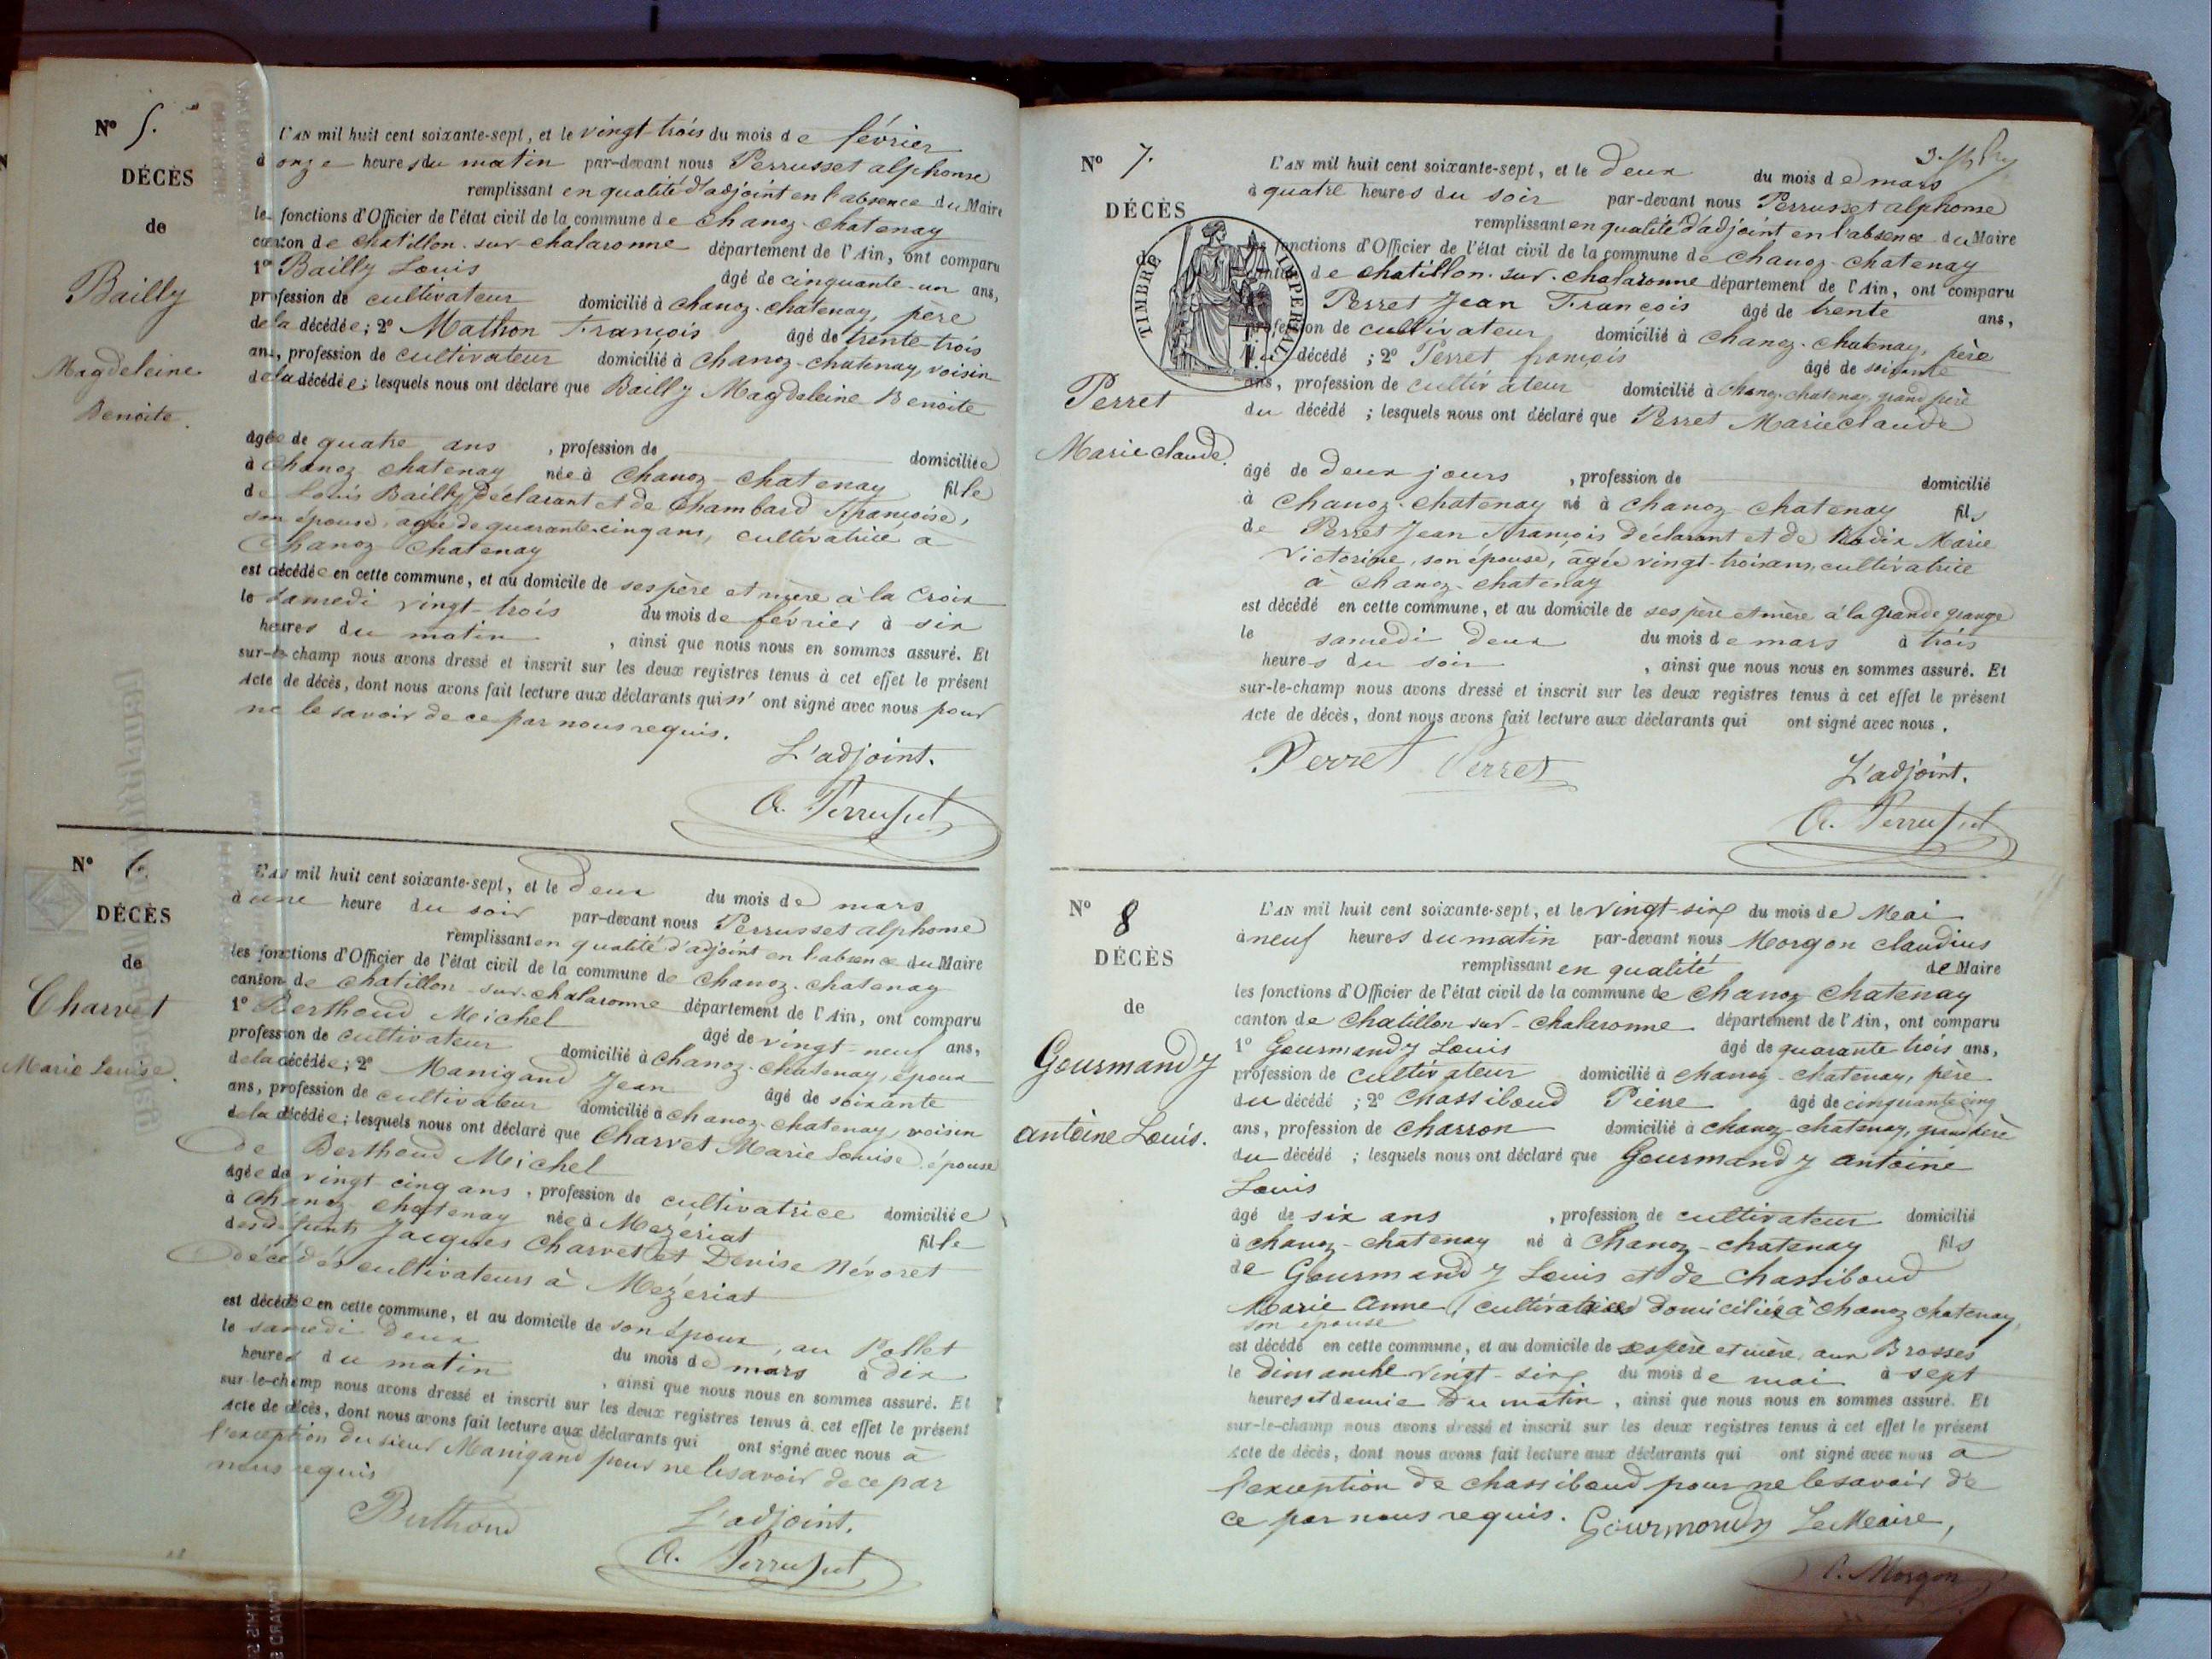 N° 5.
DÉCÈS
de
Bailly
Magdeleine
Benoite.
L'AN mil huit cent soixante-sept, et le vingt-trois du mois de février
à onze heures du matin par-devant nous Perrusset alphonse
remplissant en qualité d'adjoint en l'absence du Maire
les fonctions d'Officier de l'état civil de la commune de Chanoz-Chatenay
canton de Chatillon-sur-chalaronne département de l'Ain, ont comparu
1° Bailly Louis âgé de cinquante-un ans,
profession de cultivateur domicilié à Chanoz-Chatenay, père
de la décédée; 2° Mathon François âgé de trente-trois
ans, profession de cultivateur domicilié à Chanoz-Chatenay, voisin
de la décédée; lesquels nous ont déclaré que Bailly Magdeleine Benoite
âgée de quatre ans , profession de domiciliée
à Chanoz-Chatenay née à Chanoz-Chatenay fille
de Louis Bailly déclarant et de Chambard Françoise,
son épouse, agée de quarante-cinq ans, cultivatrice à
Chanoz-Chatenay
est décédée en cette commune, et au domicile de ses père et mère à la Croix
le samedi vingt-trois du mois de février à six
heures du matin , ainsi que nous nous en sommes assuré. Et
sur-le-champ nous avons dressé et inscrit sur les deux registres tenus à cet effet le présent
Acte de décès, dont nous avons fait lecture aux déclarants qui n'ont signé avec nous pour
ne le savoir de ce par nous requis.
L'adjoint.
A. Perrusset
N° 6.
DÉCÈS
de
Charvet
Marie Louise.
L'AN mil huit cent soixante-sept, et le deux du mois de mars
à une heure du soir par-devant nous Perrusset alphonse
remplissant en qualité d'adjoint en l'absence du Maire
les fonctions d'Officier de l'état civil de la commune de Chanoz-Chatenay
canton de chatillon-sur-chalaronne département de l'Ain, ont comparu
1° Berthoud Michel âgé de vingt-neuf ans,
profession de cultivateur domicilié à Chanoz-Chatenay, époux
de la décédée; 2° Manigand Jean âgé de soixante
ans, profession de cultivateur domicilié à Chanoz-Chatenay, voisin
de la décédée; lesquels nous ont déclaré que Charvet Marie Louise, épouse
de Berthoud Michel
âgée de vingt-cinq ans, profession de cultivatrice domiciliée
à Chanoz-Chatenay née à Mezériat fille
des défunts Jacques Charvet et Denise Névoret
décédés cultivateurs à Mezériat
est décédée en cette commune, et au domicile de son époux, au Pollet
le samedi deux du mois de mars à dix
heures du matin , ainsi que nous nous en sommes assuré. Et
sur-le-champ nous avons dressé et inscrit sur les deux registres tenus à cet effet le présent
Acte de décès, dont nous avons fait lecture aux déclarants qui ont signé avec nous à
l'exception du sieur Manigand pour ne le savoir de ce par
nous requis
Berthoud
L'adjoint.
A. Perrusset
N° 7.
DÉCÈS
TIMBRE IMPERIAL
Perret
Marie claude.
L'AN mil huit cent soixante-sept, et le deux du mois de mars
à quatre heures du soir par-devant nous Perrusset alphonse
remplissant en qualité d'adjoint en l'absence du Maire
les fonctions d'Officier de l'état civil de la commune de Chanoz-Chatenay
canton de chatillon-sur-chalaronne département de l'Ain, ont comparu
Perret Jean François âgé de trente ans,
profession de cultivateur domicilié à Chanoz-Chatenay, père
du décédé ; 2° Perret françois âgé de soixante
ans, profession de cultivateur domicilié à Chanoz-Chatenay, grand père
du décédé ; lesquels nous ont déclaré que Perret Marie claude
âgé de deux jours , profession de domicilié
à Chanoz-Chatenay né à Chanoz-Chatenay fils
de Perret Jean François déclarant et de Rodix Marie
Victorine, son épouse, âgée vingt-trois ans, cultivatrice
à Chanoz-Chatenay
est décédé en cette commune, et au domicile de ses père et mère à la grande grange
le samedi deux du mois de mars à trois
heures du soir , ainsi que nous nous en sommes assuré. Et
sur-le-champ nous avons dressé et inscrit sur les deux registres tenus à cet effet le présent
Acte de décès, dont nous avons fait lecture aux déclarants qui ont signé avec nous.
Perret Perret
L'adjoint.
A. Perrusset
N° 8
DÉCÈS
de
Gourmandy
antoine Louis.
L'AN mil huit cent soixante-sept, et le vingt-six du mois de Mai
à neuf heures du matin par-devant nous Morgon claudius
remplissant en qualité de Maire
les fonctions d'Officier de l'état civil de la commune de Chanoz Chatenay
canton de Chatillon sur-Chalaronne département de l'Ain, ont comparu
1° Gourmandy Louis âgé de quarante trois ans,
profession de cultivateur domicilié à Chanoz-Chatenay, père
du décédé ; 2° Chassiboud Pierre âgé de cinquante cinq
ans, profession de charron domicilié à Chanoz-Chatenay, grand père
du décédé ; lesquels nous ont déclaré que Gourmandy antoine
Louis
âgé de six ans , profession de cultivateur domicilié
à Chanoz-Chatenay né à Chanoz-Chatenay fils
de Gourmandy Louis et de Chassiboud
Marie Anne, cultivatrice domiciliée à Chanoz Chatenay,
son épouse
est décédé en cette commune, et au domicile de ses père et mère, aux Brosses
le dimanche vingt-six du mois de mai à sept
heures et demie du matin , ainsi que nous nous en sommes assuré. Et
sur-le-champ nous avons dressé et inscrit sur les deux registres tenus à cet effet le présent
Acte de décès, dont nous avons fait lecture aux déclarants qui ont signé avec nous à
l'exception de chassiboud pour ne le savoir de
ce par nous requis. Gourmandy Le Maire,
C. Morgon